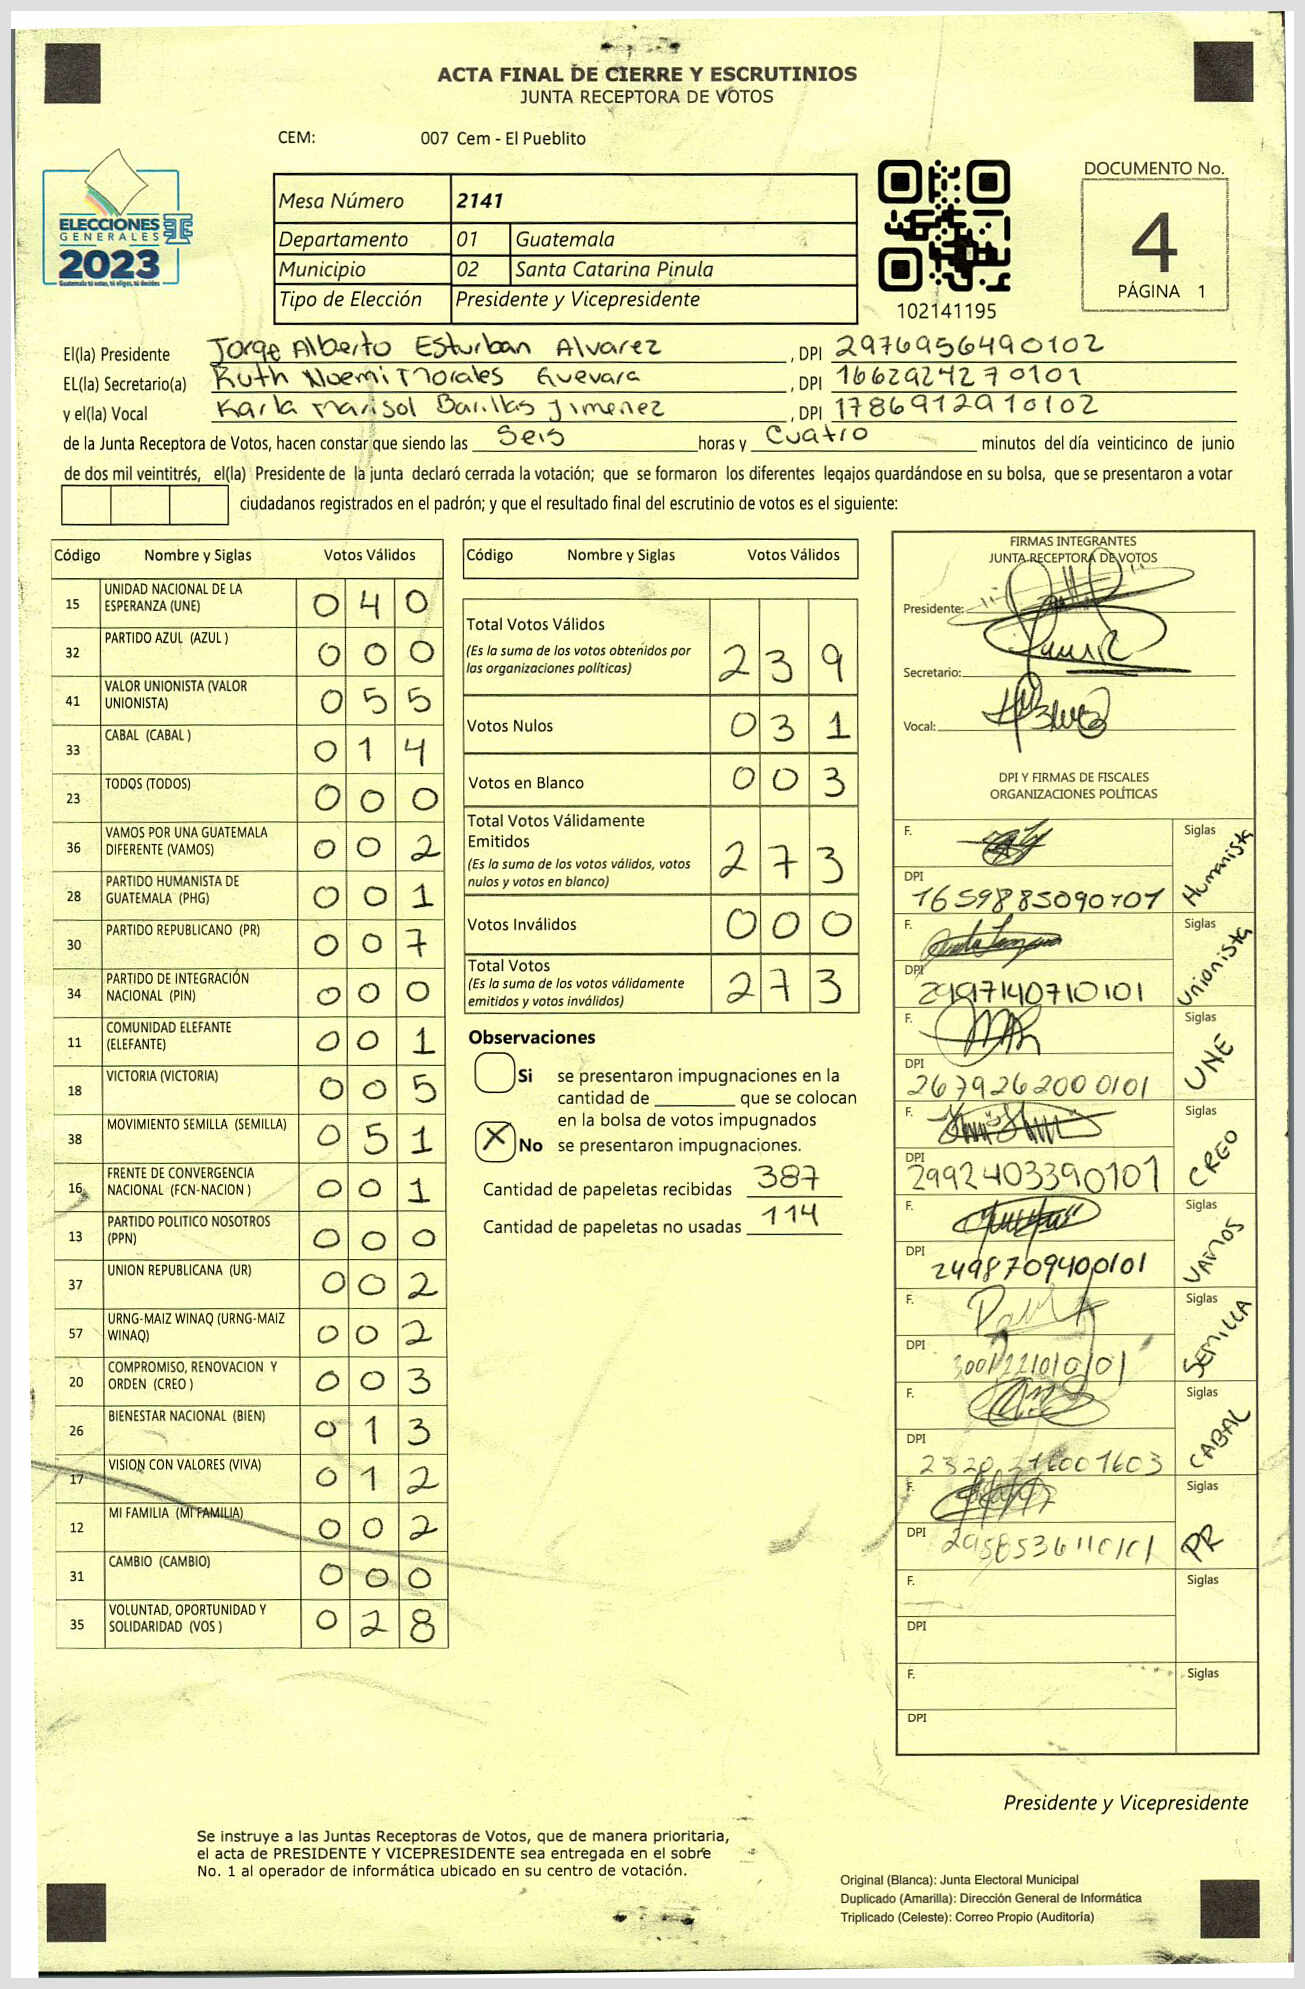 ACTA FINAL DE CIERRE Y ESCRUTINIOS
JUNTA RECEPTORA DE VOTOS
CEM: 007 Cem - El Pueblito
ELECCIONES
GENERALES
2023
Guatemala tú votas, tú eliges, tú decides
Mesa Número 2141
Departamento 01 Guatemala
Municipio 02 Santa Catarina Pinula
Tipo de Elección Presidente y Vicepresidente
102141195
DOCUMENTO No.
4
PÁGINA 1
El(la) Presidente Jorge Alberto Esturban Alvarez , DPI 2976956490102
EL(la) Secretario(a) Ruth Noemi Morales Guevara , DPI 1662924270101
y el(la) Vocal Karla Marisol Barillas Jimenez , DPI 1786912910102
de la Junta Receptora de Votos, hacen constar que siendo las Seis horas y Cuatro minutos del día veinticinco de junio
de dos mil veintitrés, el(la) Presidente de la junta declaró cerrada la votación; que se formaron los diferentes legajos guardándose en su bolsa, que se presentaron a votar
ciudadanos registrados en el padrón; y que el resultado final del escrutinio de votos es el siguiente:
Código Nombre y Siglas Votos Válidos
15 UNIDAD NACIONAL DE LA ESPERANZA (UNE) 0 4 0
32 PARTIDO AZUL (AZUL ) 0 0 0
41 VALOR UNIONISTA (VALOR UNIONISTA) 0 5 5
33 CABAL (CABAL ) 0 1 4
23 TODOS (TODOS) 0 0 0
36 VAMOS POR UNA GUATEMALA DIFERENTE (VAMOS) 0 0 2
28 PARTIDO HUMANISTA DE GUATEMALA (PHG) 0 0 1
30 PARTIDO REPUBLICANO (PR) 0 0 7
34 PARTIDO DE INTEGRACIÓN NACIONAL (PIN) 0 0 0
11 COMUNIDAD ELEFANTE (ELEFANTE) 0 0 1
18 VICTORIA (VICTORIA) 0 0 5
38 MOVIMIENTO SEMILLA (SEMILLA) 0 5 1
16 FRENTE DE CONVERGENCIA NACIONAL (FCN-NACION ) 0 0 1
13 PARTIDO POLITICO NOSOTROS (PPN) 0 0 0
37 UNION REPUBLICANA (UR) 0 0 2
57 URNG-MAIZ WINAQ (URNG-MAIZ WINAQ) 0 0 2
20 COMPROMISO, RENOVACION Y ORDEN (CREO ) 0 0 3
26 BIENESTAR NACIONAL (BIEN) 0 1 3
17 VISION CON VALORES (VIVA) 0 1 2
12 MI FAMILIA (MI FAMILIA) 0 0 2
31 CAMBIO (CAMBIO) 0 0 0
35 VOLUNTAD, OPORTUNIDAD Y SOLIDARIDAD (VOS ) 0 2 8
Código Nombre y Siglas Votos Válidos
Total Votos Válidos 2 3 9
(Es la suma de los votos obtenidos por
las organizaciones políticas)
Votos Nulos 0 3 1
Votos en Blanco 0 0 3
Total Votos Válidamente
Emitidos 2 7 3
(Es la suma de los votos válidos, votos
nulos y votos en blanco)
Votos Inválidos 0 0 0
Total Votos 2 7 3
(Es la suma de los votos válidamente
emitidos y votos inválidos)
Observaciones
Si se presentaron impugnaciones en la
cantidad de ________ que se colocan
en la bolsa de votos impugnados
X No se presentaron impugnaciones.
Cantidad de papeletas recibidas 387
Cantidad de papeletas no usadas 114
FIRMAS INTEGRANTES
JUNTA RECEPTORA DE VOTOS
Presidente:
Secretario:
Vocal:
DPI Y FIRMAS DE FISCALES
ORGANIZACIONES POLÍTICAS
F. Siglas Humanista
DPI 1659885090101
F. Siglas Unionista
DPI 2997140710101
F. Siglas UNE
DPI 2679262000101
F. Siglas CREO
DPI 2992403390101
F. Siglas VAMOS
DPI 2498709400101
F. Siglas SEMILLA
DPI
F. Siglas CABAL
DPI
F. Siglas PR
DPI
F. Siglas
DPI
F. Siglas
DPI
Presidente y Vicepresidente
Se instruye a las Juntas Receptoras de Votos, que de manera prioritaria,
el acta de PRESIDENTE Y VICEPRESIDENTE sea entregada en el sobre
No. 1 al operador de informática ubicado en su centro de votación.
Original (Blanca): Junta Electoral Municipal
Duplicado (Amarilla): Dirección General de Informática
Triplicado (Celeste): Correo Propio (Auditoría)